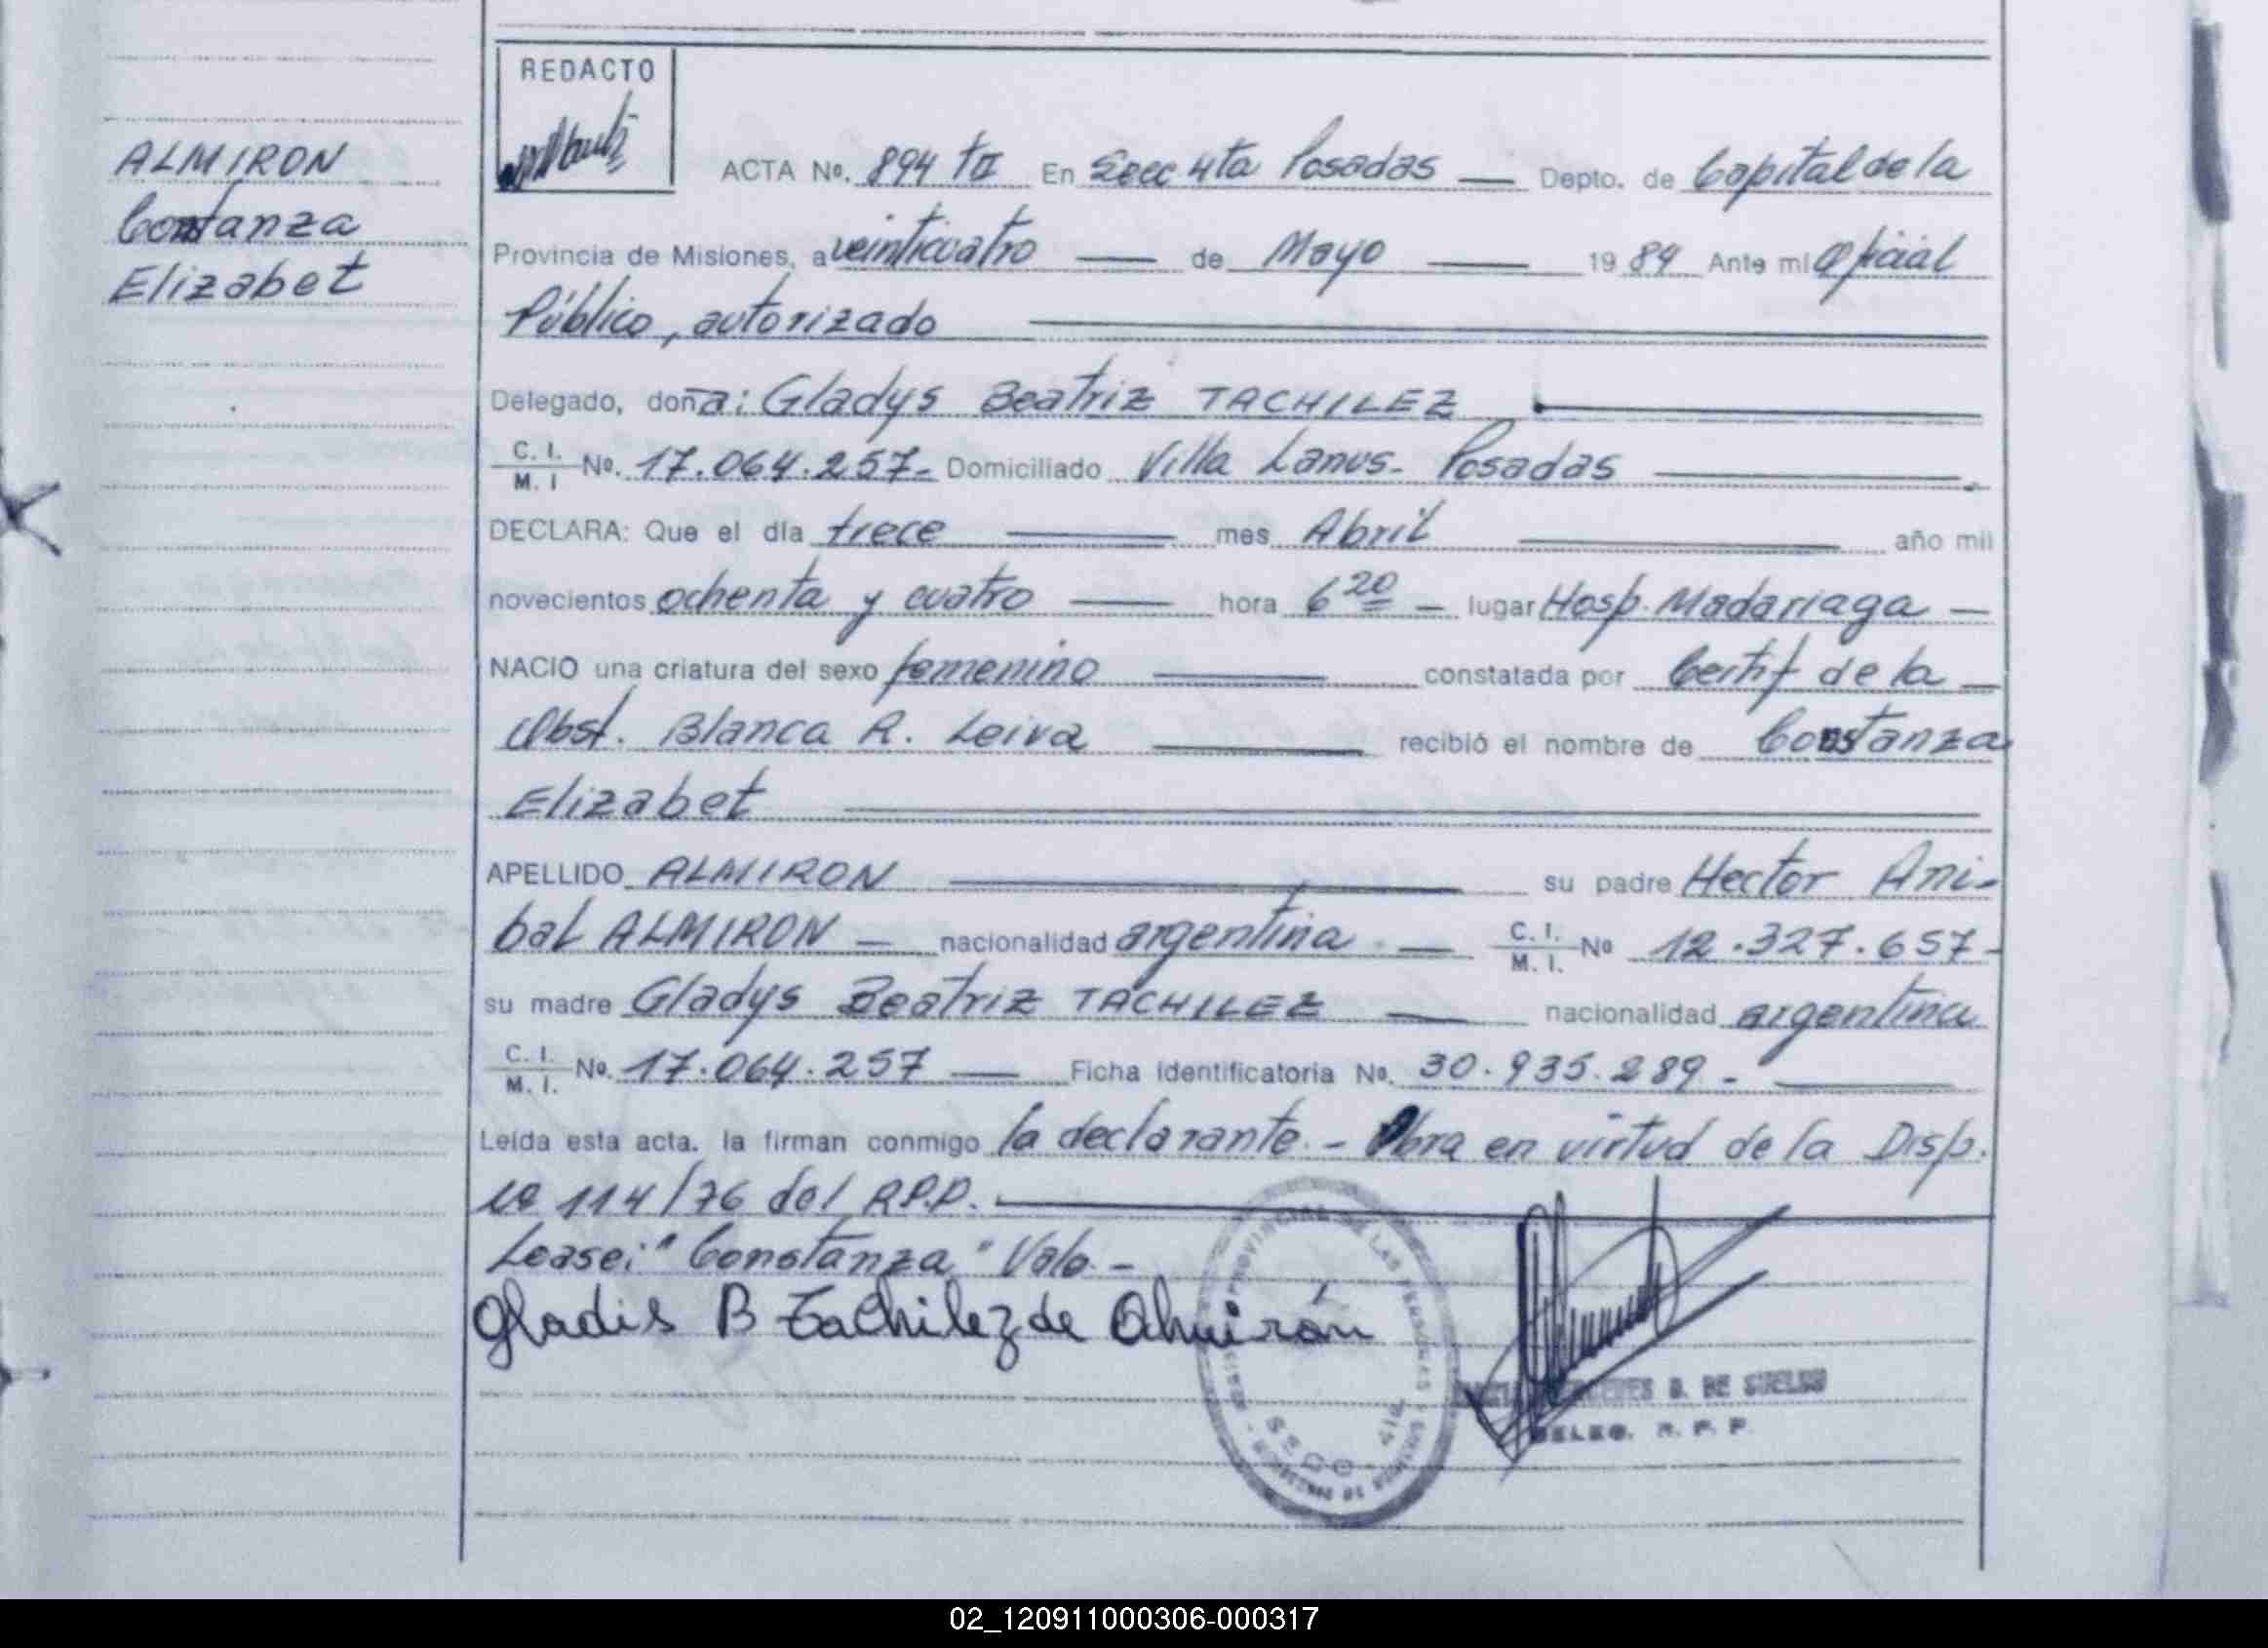 REDACTO
ALMIRON
Constanza
Elizabet
ACTA No. 894 tII En Secc 4ta Posadas — Depto. de Capital de la
Provincia de Misiones, a veinticuatro — de Mayo — 19 84 Ante mi Oficial
Público, autorizado
Delegado, doña: Gladys Beatriz TACHILEZ
C. I. / M. I No. 17.064.257- Domiciliado Villa Lanus - Posadas
DECLARA: Que el día trece — mes Abril — año mil
novecientos ochenta y cuatro — hora 6 20 — lugar Hosp. Madariaga —
NACIO una criatura del sexo femenino — constatada por Certif de la —
Obst. Blanca R. Leiva — recibió el nombre de Constanza
Elizabet
APELLIDO ALMIRON — su padre Hector Ani-
bal ALMIRON — nacionalidad argentina — C. I. / M. I. No 12.327.657-
su madre Gladys Beatriz TACHILEZ — nacionalidad argentina
C. I. / M. I. No. 17.064.257 — Ficha Identificatoria No. 30.935.289 - —
Leída esta acta. la firman conmigo la declarante. - Obra en virtud de la Disp.
No 114/76 del R.P.P.
Lease: "Constanza" Vale -
Gladis B Tachilez de Almirón
PROVINCIAL DE LAS PERSONAS
B. DE SUELDO
DELEG. R. P. P.
02_120911000306-000317